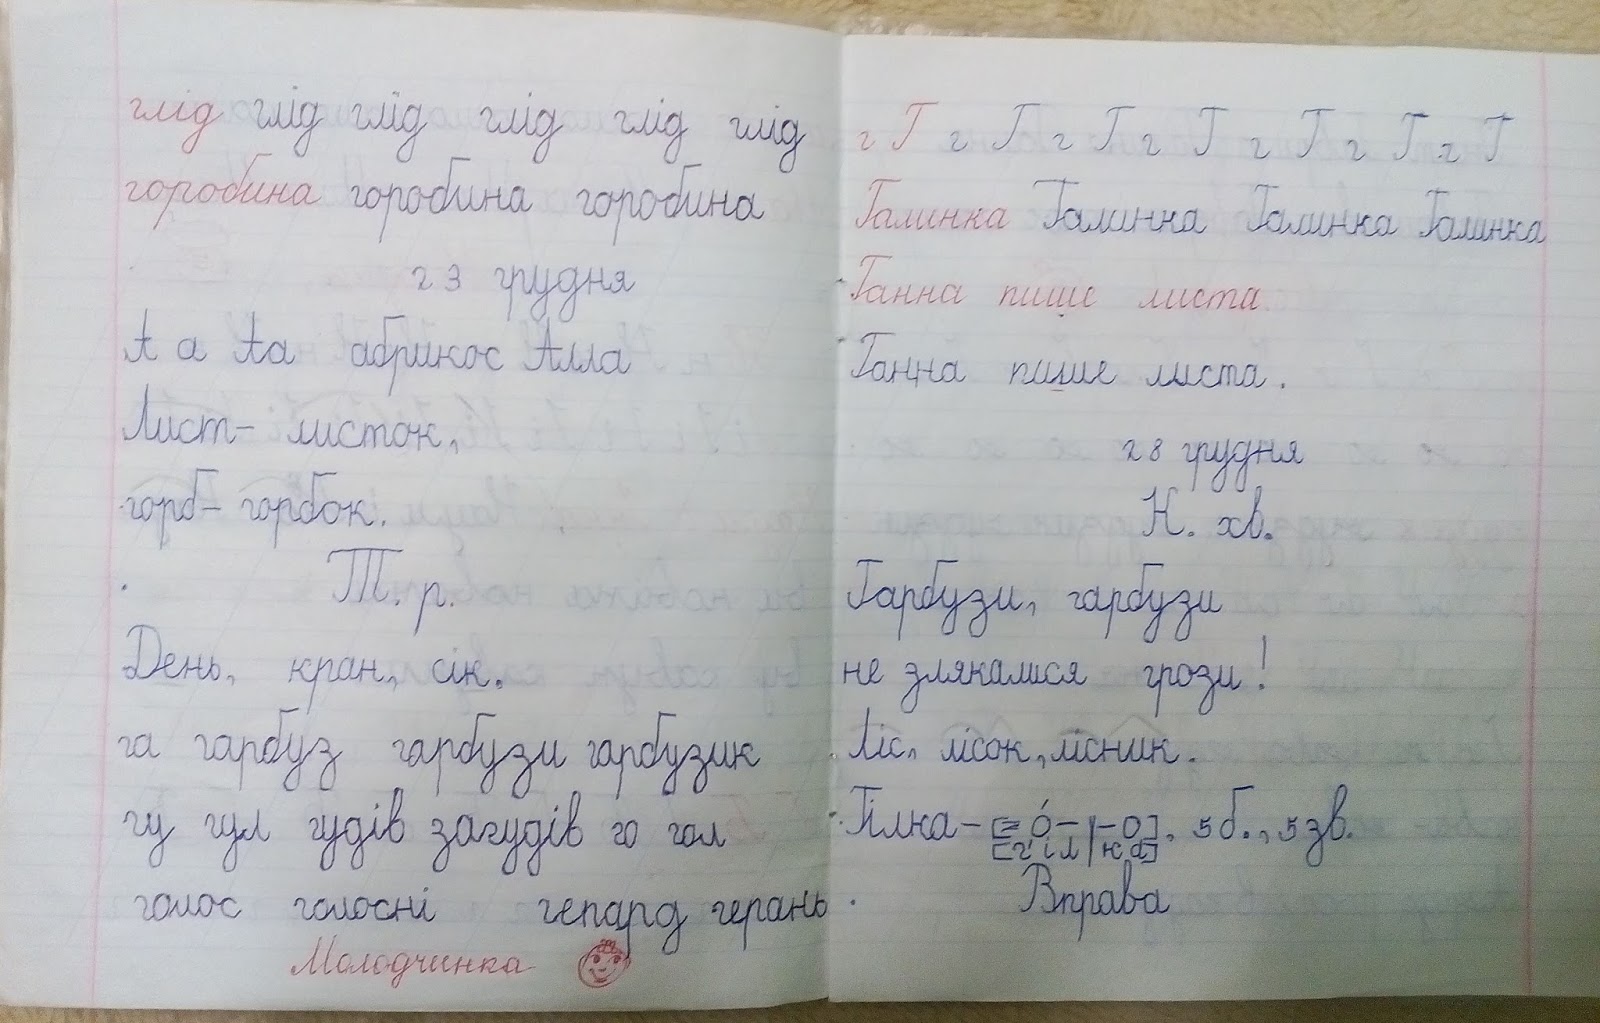 глід глід глід глід глід глід
горобина горобина горобина
23 грудня
А а Аа абрикос Алла
Лист- листок,
горб- горбок.
Т. р.
День, кран, сік.
га гарбуз гарбузи гарбузик
гу гул гудів загудів го гол
голос голосні гепард герань
Молодчинка
г Г г Г г Г г Г г Г г Г г Г
Галинка Галинка Галинка Галинка
Ганна пише листа.
Ганна пише листа.
28 грудня
К. хв.
Гарбузи, гарбузи
не злякалися грози!
Ліс, лісок, лісник.
Гілка- [= о́ – | – о], 5 б., 5 зв.
[г' і л | к а]
Вправа